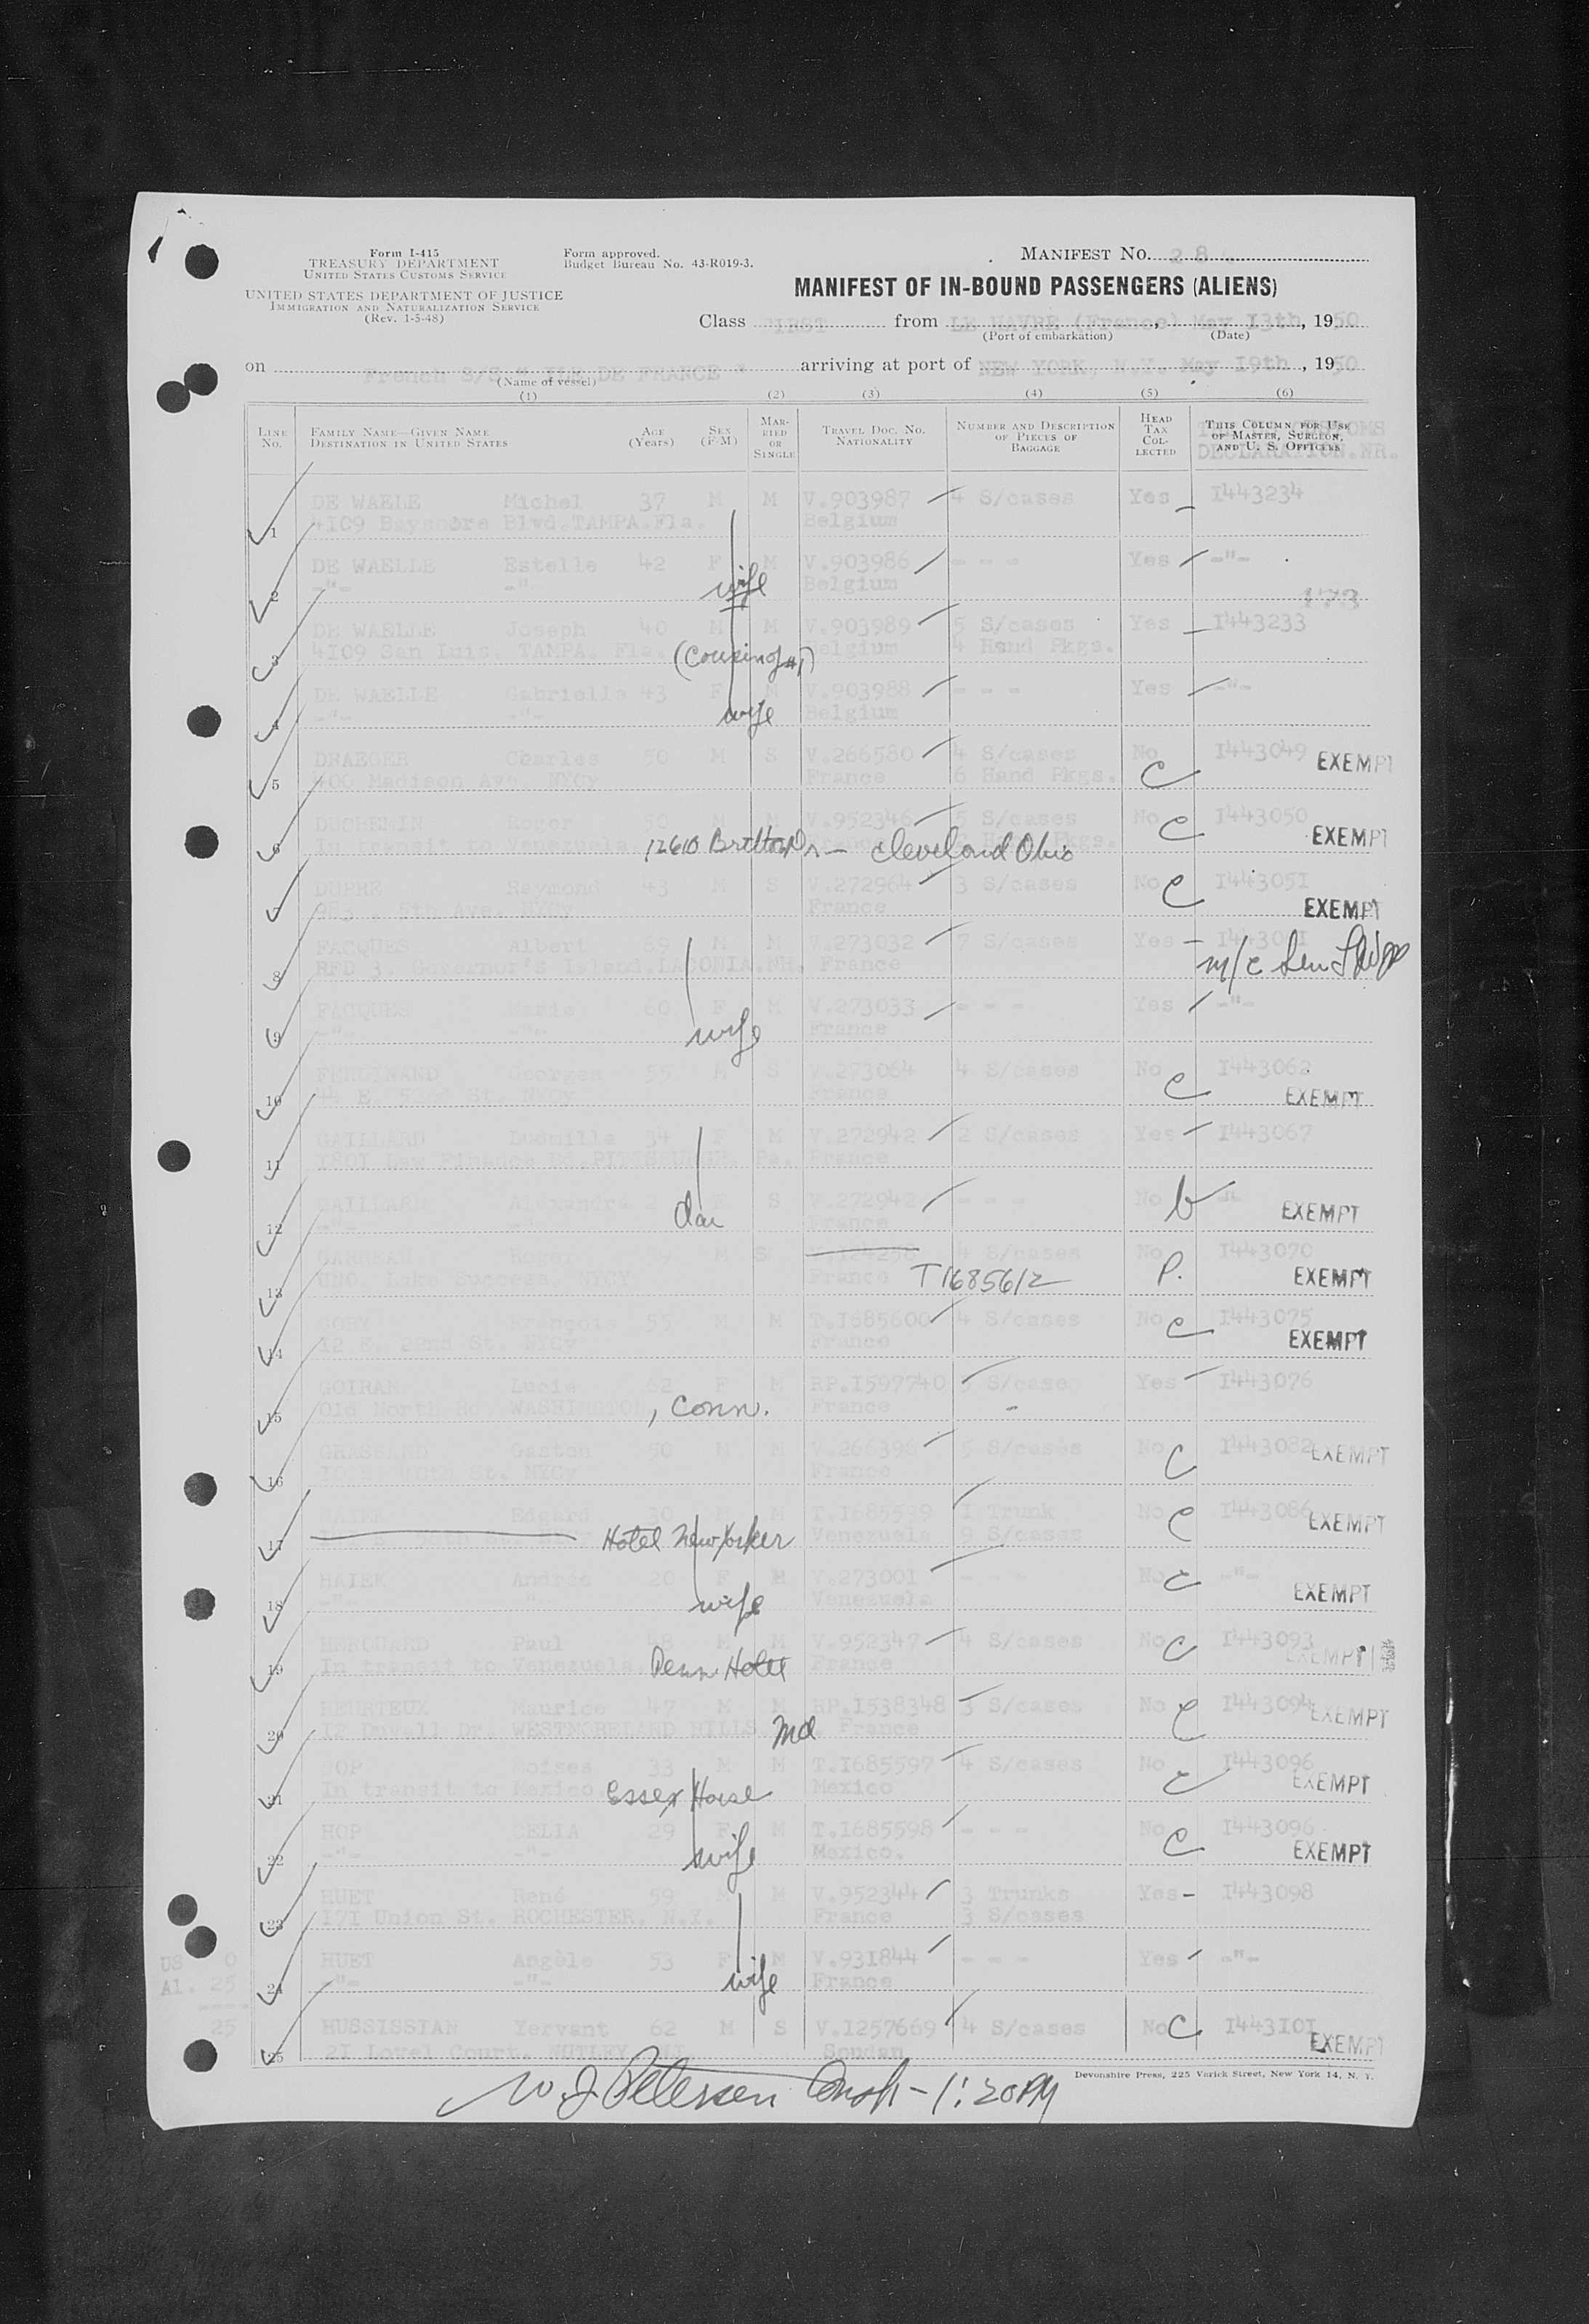 Form I-415
TREASURY DEPARTMENT
UNITED STATES CUSTOMS SERVICE
UNITED STATES DEPARTMENT OF JUSTICE
IMMIGRATION AND NATURALIZATION SERVICE
(Rev. 1-5-48)
Form approved.
Budget Bureau No. 43-R019-3.
MANIFEST NO. 28
MANIFEST OF IN-BOUND PASSENGERS (ALIENS)
Class FIRST from LE HAVRE (France), May 13th, 1950
(Port of embarkation) (Date)
on French S/S " ILE DE FRANCE " arriving at port of NEW YORK, N.Y. May 19th, 1950
(Name of vessel)
(1) (2) (3) (4) (5) (6)
LINE NO. FAMILY NAME—GIVEN NAME DESTINATION IN UNITED STATES AGE (Years) SEX (F-M) MARRIED OR SINGLE TRAVEL DOC. NO. NATIONALITY NUMBER AND DESCRIPTION OF PIECES OF BAGGAGE HEAD TAX COLLECTED THIS COLUMN FOR USE OF MASTER, SURGEON, AND U. S. OFFICERS
DECLARATION.NR.
1 DE WAELE Michel 37 M M V.903987 4 S/cases Yes I443234
4I09 Bayshore Blvd.TAMPA.Fla. Belgium
2 DE WAELLE Estelle 42 F M V.903986 - - - Yes -"-
-"- -"- wife Belgium
173
3 DE WAELLE Joseph 40 M M V.903989 5 S/cases Yes I443233
4I09 San Luis. TAMPA. Fla. (Cousin of #1) Belgium 4 Hand Pkgs.
4 DE WAELLE Gabrielle 43 F M V.903988 - - - Yes -"-
-"- -"- wife Belgium
5 DRAEGER Charles 50 M S V.266580 4 S/cases No C I443049 EXEMPT
400 Madison Av. NYCy France 6 Hand Pkgs.
6 DUCHEMIN Roger 50 M M V.952346 5 S/cases No C I443050 EXEMPT
In transit to Venezuela 12610 Dr — Cleveland Ohio Pkgs.
7 DUPRE Raymond 43 M S V.272964 3 S/cases No C I443051 EXEMPT
983 . 5th Ave. NYCy France
8 FACQUES Albert 69 M M V.273032 7 S/cases Yes
RFD 3. Governor's Island. NH. France m/c
9 FACQUES Marie 60 F M V.273033 - - - Yes -"-
-"- -"- wife France
10 FERDINAND Georges 55 M S V.273064 4 S/cases No C I443062 EXEMPT
44 E. 52nd St. NYCy France
11 GAILLARD Ludmilla 34 F M V.272942 2 S/cases Yes I443067
1801 Law Finance Bd.PITTSBURGH. Pa. France
12 GAILLARD Alexandra 2 F S V.272942 - - - No b -"- EXEMPT
-"- -"- dau France
13 Roger M S 4 S/cases No P. I443070 EXEMPT
UNO. Lake Success. NYCY France T1685612
14 GOBY François 55 M M T.I685600 4 S/cases No C I443075 EXEMPT
12 E. 22nd St. NYCy France
15 GOIRAN Lucie 62 F M RP.I597740 5 S/case Yes I443076
Old North Rd. WASHINGTON , Conn. France -
16 Gaston 50 M M V.266396 5 S/cases No C I443082 EXEMPT
St. NYCy France
17 HAIEK Edgard 30 M M T.I685539 1 Trunk No C I443086 EXEMPT
Hotel New Yorker Venezuela 9 S/cases
18 HAIEK Andrée 20 F M V.273001 - - - No C -"- EXEMPT
-"- " wife Venezuela
19 HENQUARD Paul 48 M M V.952347 4 S/cases No C I443093 EXEMPT
In transit to Venezuela. Penn Hotel France
20 BEURTEUX Maurice 47 M M RP.I538348 3 S/cases No C I443094 EXEMPT
12 Duvall Dr. WESTMORELAND HILLS Md. France
21 HOP Moises 33 M M T.I685597 4 S/cases No C I443096 EXEMPT
In transit to Mexico Essex House Mexico
22 HOP CELIA 29 F M T.I685598 - - - No C I443096 EXEMPT
-"- -"- wife Mexico.
23 HUET René 59 M M V.952344 3 Trunks Yes I443098
I7I Union St. ROCHESTER. N.Y. France 3 S/cases
24 HUET Angèle 53 F M V.931844 - - - Yes -"-
-"- -"- wife France
US 0
Al. 25
----
25
25 HUSSISSIAN Yervant 62 M S V.1257669 4 S/cases No C I443I0I EXEMPT
2I Lovel Court. NUTLEY Soudan
Devonshire Press, 225 Varick Street, New York 14, N. Y.
W J Petersen - 1:20 PM